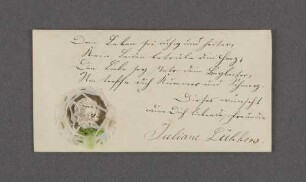 Dein Leben sei ruhig und heiter,
Kein Leiden betrübe dein Herz,
Das Glück sey stets dein Begleiter,
Nie treffe dich Kummer und Schmerz.
Dieses wünscht
Dich liebende Freundin
Juliane Lükken